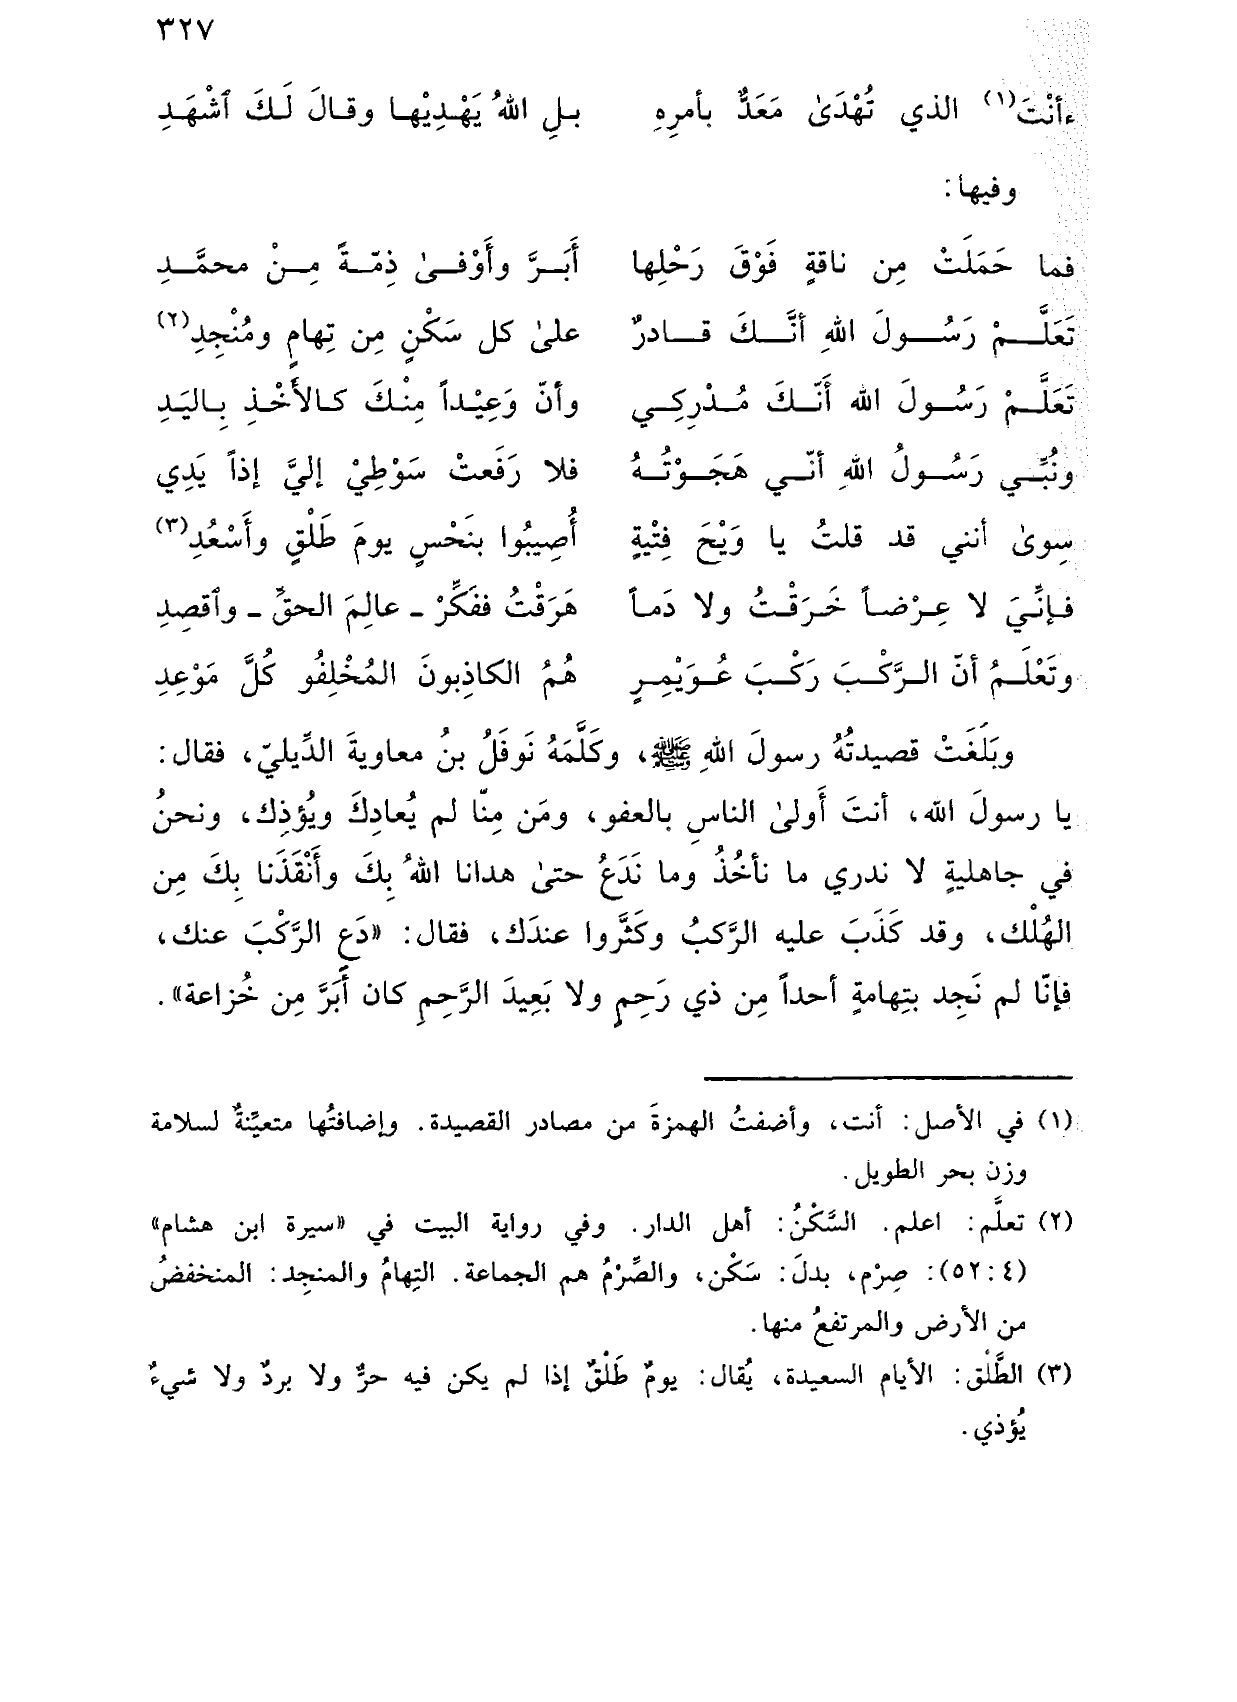 ٣٢٧
ءأنْتَ(١) الذي تُهْدَىٰ مَعَدٌّ بأمرِهِ بـلِ اللهُ يَهْـدِيْهـا وقـالَ لَـكَ ٱشْهَـدِ
وفيها:
فما حَمَلَتْ مِن ناقةٍ فَوْقَ رَحْلِها أَبَـرَّ وأَوْفـىٰ ذِمّـةً مِـنْ محمَّـدِ
تَعَلَّـمْ رَسُـولَ اللهِ أنَّـكَ قـادرٌ علىٰ كل سَكْنٍ مِن تِهامٍ ومُنْجِدِ(٢)
تَعَلَّـمْ رَسُـولَ الله أَنّـكَ مُـدْرِكِـي وأنّ وَعِيْـداً مِنْـكَ كـالأَخْـذِ بِـاليَـدِ
ونُبِّـي رَسُـولُ اللهِ أنّـي هَجَـوْتُـهُ فلا رَفَعتْ سَوْطِيْ إليَّ إذاً يَدِي
سِوىٰ أنني قد قلتُ يا وَيْحَ فِتْيةٍ أُصِيبُوا بنَحْسٍ يومَ طَلْقٍ وأَسْعُدِ(٣)
فـإنِّـيَ لا عِـرْضـاً خَـرَقْـتُ ولا دَمـاً هَرَقْتُ ففَكِّرْ ـ عالِمَ الحقِّ ـ وٱقصِدِ
وتَعْلَـمُ أنّ الـرَّكْـبَ رَكْـبَ عُـوَيْمِـرٍ هُمُ الكاذِبونَ المُخْلِفُو كُلَّ مَوْعِدِ
وبَلَغَتْ قصيدتُهُ رسولَ اللهِ ﷺ، وكَلَّمَهُ نَوفَلُ بنُ معاويةَ الدِّيليّ، فقال:
يا رسولَ الله، أنتَ أَولىٰ الناسِ بالعفو، ومَن مِنّا لم يُعادِكَ ويُؤذِك، ونحنُ
في جاهليةٍ لا ندري ما نأخُذُ وما نَدَعُ حتىٰ هدانا اللهُ بِكَ وأَنْقَذَنا بِكَ مِن
الهُلْك، وقد كَذَبَ عليه الرَّكبُ وكَثَّروا عندَك، فقال: «دَعِ الرَّكْبَ عنك،
فإنّا لم نَجِد بتِهامةٍ أحداً مِن ذي رَحِمٍ ولا بَعِيدَ الرَّحِمِ كان أَبَرَّ مِن خُزاعة».
(١) في الأصل: أنت، وأضفتُ الهمزةَ من مصادر القصيدة. وإضافتُها متعيِّنةٌ لسلامة
وزن بحر الطويل.
(٢) تعلَّم: اعلم. السَّكْنُ: أهل الدار. وفي رواية البيت في «سيرة ابن هشام»
(٤: ٥٢): صِرْم، بدلَ: سَكْن، والصِّرْمُ هم الجماعة. التِهامُ والمنجِد: المنخفضُ
من الأرض والمرتفعُ منها.
(٣) الطَّلْق: الأيام السعيدة، يُقال: يومٌ طَلْقٌ إذا لم يكن فيه حرٌّ ولا بردٌ ولا شيءٌ
يُؤذي.